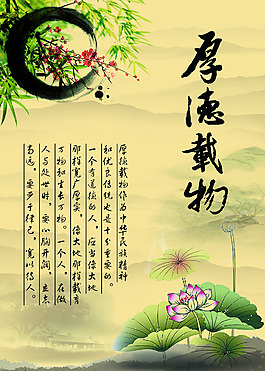 厚德載物
厚德载物作为中华民族精神
和优良传统也是十分重要的。
一个有道德的人，应当像大地
那样宽广厚实，像大地那样载育
万物和生长万物。一个人，在做
人与处世时，要心胸开阔，立志
高远，要严于律己，宽以待人。